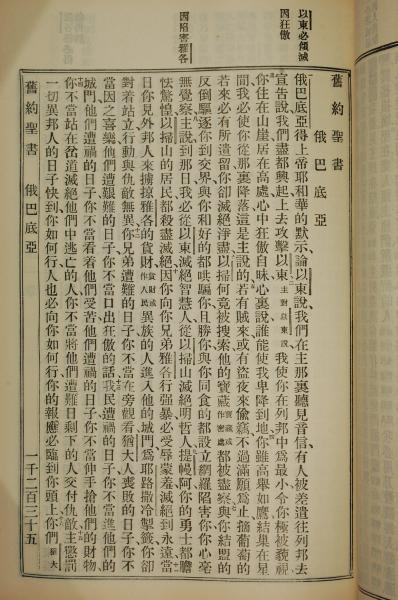 以東必傾滅
因狂傲
因陷害雅各
舊約聖書
俄巴底亞
俄巴底亞得上帝耶和華的默示論以東說我們在主那裏聽見音信有人被差遣往列邦去
宣告說我們盡都興起上去攻擊以東主對以東說我使你在列邦中為最小令你極被藐視
你住在山崖居在高處心中狂傲自昧心裏說誰能使我卑降到地你雖高舉如鷹結巢在星
間我必使你從那裏降落這是主說的若有賊來或有盜夜來偷竊不過滿願為止摘葡萄的
若來必有所遺留你卻滅絕淨盡以掃何竟被搜索他的寶藏寶藏或作密處都被盡察與你結盟的
反倒驅逐你到交界與你和好的都哄騙你且勝你與你同食的都設立網羅陷害你你心毫
無覺察主說到那日我必從以東滅絕智慧人從以掃山滅絕明哲人提幔阿你的勇士都膽
怯驚惶以掃山的居民都殺盡滅絕因你向你兄弟雅各行強暴必受辱蒙羞滅絕到永遠當
日你見外邦人來擄掠雅各的貨財貨財或作人民異族的人進入他的城門為耶路撒冷掣籤你卻
對着站立行動與仇敵無異你兄弟遭難的日子你不當在旁觀看猶大人喪敗的日子你不
當因之喜樂他們遭艱難的日子你不當口出狂傲的話我民遭禍的日子你不當進他們的
城門他們遭禍的日子你不當看着他們受苦他們遭禍的日子你不當伸手搶他們的財物
你不當站在岔道滅絕他們中逃亡的人你不當將他們遭難日剩下的人交付仇敵主懲罰
一切異邦人的日子快到你如何行人也必向你如何行你的報應必臨到你頭上你們猶大
舊約聖書 俄巴底亞 一千二百三十五